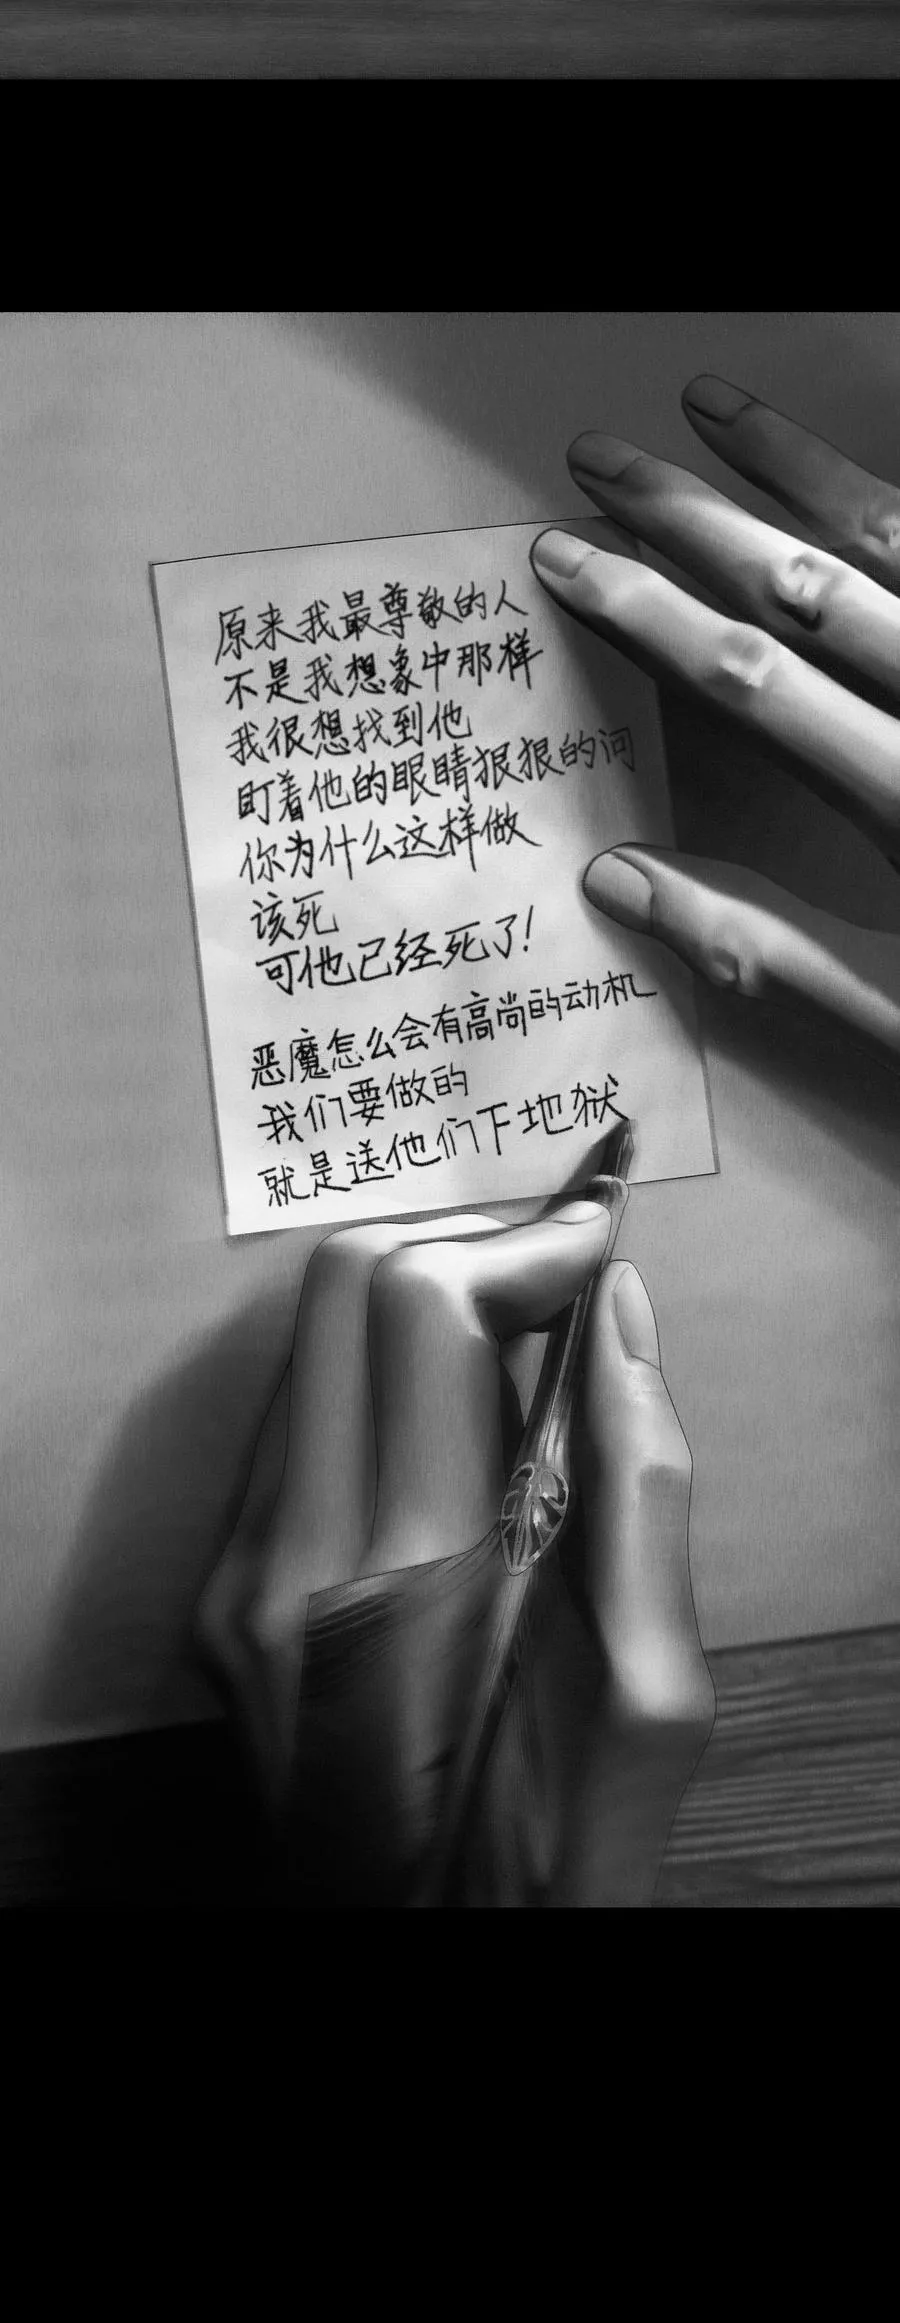 原来我最尊敬的人
不是我想象中那样
我很想找到他
盯着他的眼睛狠狠的问
你为什么这样做
该死
可他已经死了!
恶魔怎么会有高尚的动机
我们要做的
就是送他们下地狱